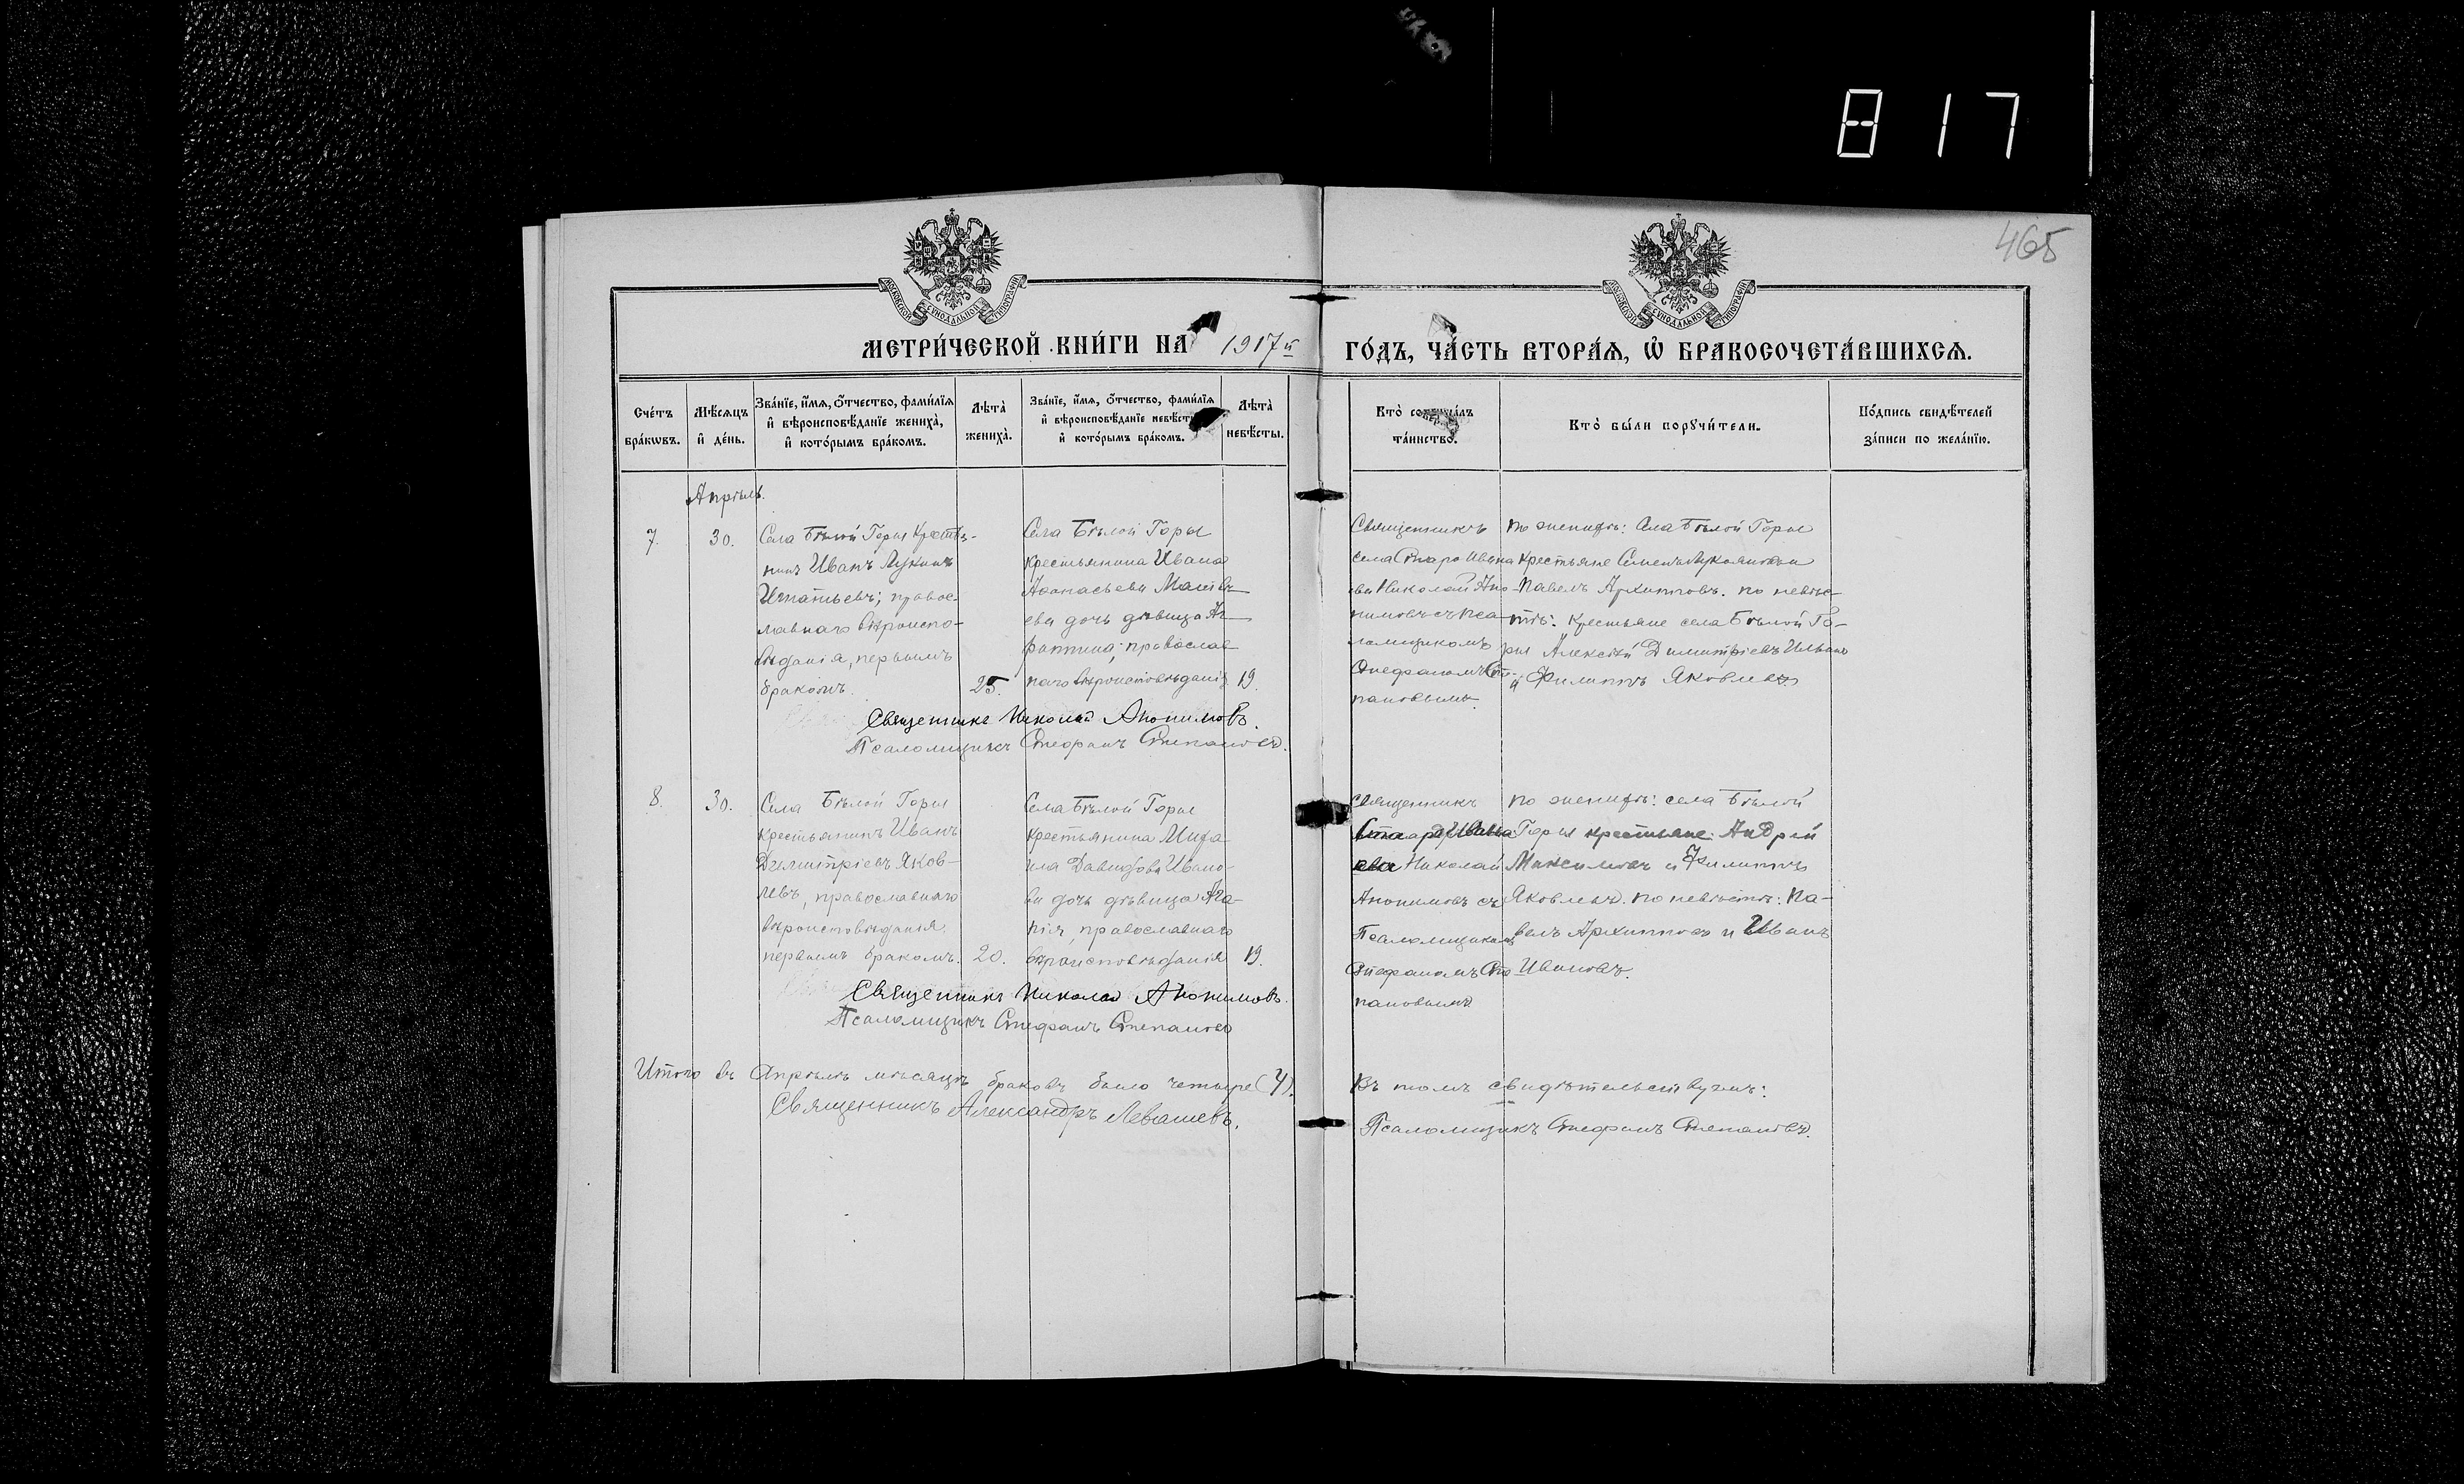 817
465
МОСКОВСКОЙ СѴНОДАЛЬНОЙ ТИПОГРАФІИ
МОСКОВСКОЙ СѴНОДАЛЬНОЙ ТИПОГРАФІИ
МЕТРИ́ЧЕСКОЙ КНИ́ГИ НА 1917й
ГО́ДЪ, ЧА́СТЬ ВТОРА́Ѧ, Ѽ БРАКОСОЧЕТА́ВШИХСѦ.
Сче́тъ бра́кѡвъ.
Мѣ́сѧцъ и҆ де́нь.
Зва́нїе, и҆́мѧ, ѻ҆́тчество, фами́лїѧ
и҆ вѣроисповѣ́данїе жениха̀,
и҆ кото́рымъ бра́комъ.
Лѣта̀ жениха̀.
Зва́нїе, и҆́мѧ, ѻ҆́тчество, фами́лїѧ
и҆ вѣроисповѣ́данїе невѣ́сты
и҆ кото́рымъ бра́комъ.
Лѣта̀ невѣ́сты.
Кто̀ соверша́лъ та́инство.
Кто̀ бы́ли порꙋчи́тели.
По́дпись свидѣ́телей
за́писи по жела́нїю.
Апрѣль.
7.
30.
Села Бѣлой Горы Крестья-
нинъ Иванъ Лукинъ
Игнатьевъ; правос-
лавнаго вѣроиспо-
вѣданія, первымъ
бракомъ.
25.
Села Бѣлой Горы
крестьянина Ивана
Аѳанасьева Матвѣ-
ева дочь дѣвица Аг-
фиппина; православ
наго вѣроисповѣданія
19.
Священникъ
села Старо Ивана
ева Николай Ано-
нимовъ съ Пса
ломщикомъ
Стефаномъ Сте-
пановымъ.
по женихѣ: Села Бѣлой Горы
Крестьяне Семенъ Лукояновъ и
Павелъ Архиповъ. по невѣс-
тѣ: Крестьяне села Бѣлой Го-
ры Алексѣй Димитріевъ Ильинъ
и Филиппъ Яковлевъ
Священникъ Николай Анонимовъ.
Псаломщикъ Стефанъ Степановъ.
8.
30.
Села Бѣлой Горы
крестьянинъ Иванъ
Димитріевъ Яков-
левъ, православнаго
вѣроисповѣданія,
первымъ бракомъ.
20.
Села Бѣлой Горы
крестьянина Миха
ила Давидова Ивано-
ва дочь дѣвица Ага-
пія, православнаго
вѣроисповѣданія
19.
Священникъ
Старо Ивана
ева Николай
Анонимовъ съ
Псаломщикомъ
Стефаномъ Сте
пановымъ
по женихѣ: села Бѣлой
Горы крестьяне: Андрей
Максимовъ и Филиппъ
Яковлевъ. по невѣстѣ: Па-
велъ Архиповъ и Иванъ
Ивановъ.
Священникъ Николай Анонимовъ.
Псаломщикъ Стефанъ Степановъ
Итого въ Апрѣлѣ мѣсяцѣ браковъ было четыре (4).
Священникъ Александръ Левашевъ.
Въ томъ свидѣтельствуемъ:
Псаломщикъ Стефанъ Степановъ.